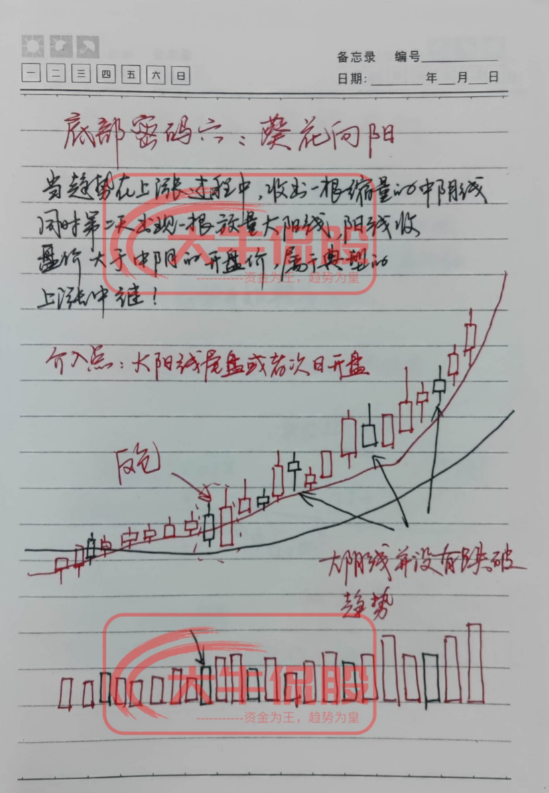 备忘录 编号
一 二 三 四 五 六 日
日期: 年 月 日
底部密码六：葵花向阳
当趋势在上涨过程中，收出一根缩量的中阴线
同时第二天出现一根放量大阳线，阳线收
盘价大于中阴的开盘价，属于典型的
上涨中继！
大牛侃股
----------资金为王，趋势为皇
介入点：大阳线尾盘或者次日开盘
反包
大阴线并没有跌破
趋势
大牛侃股
-----------资金为王，趋势为皇